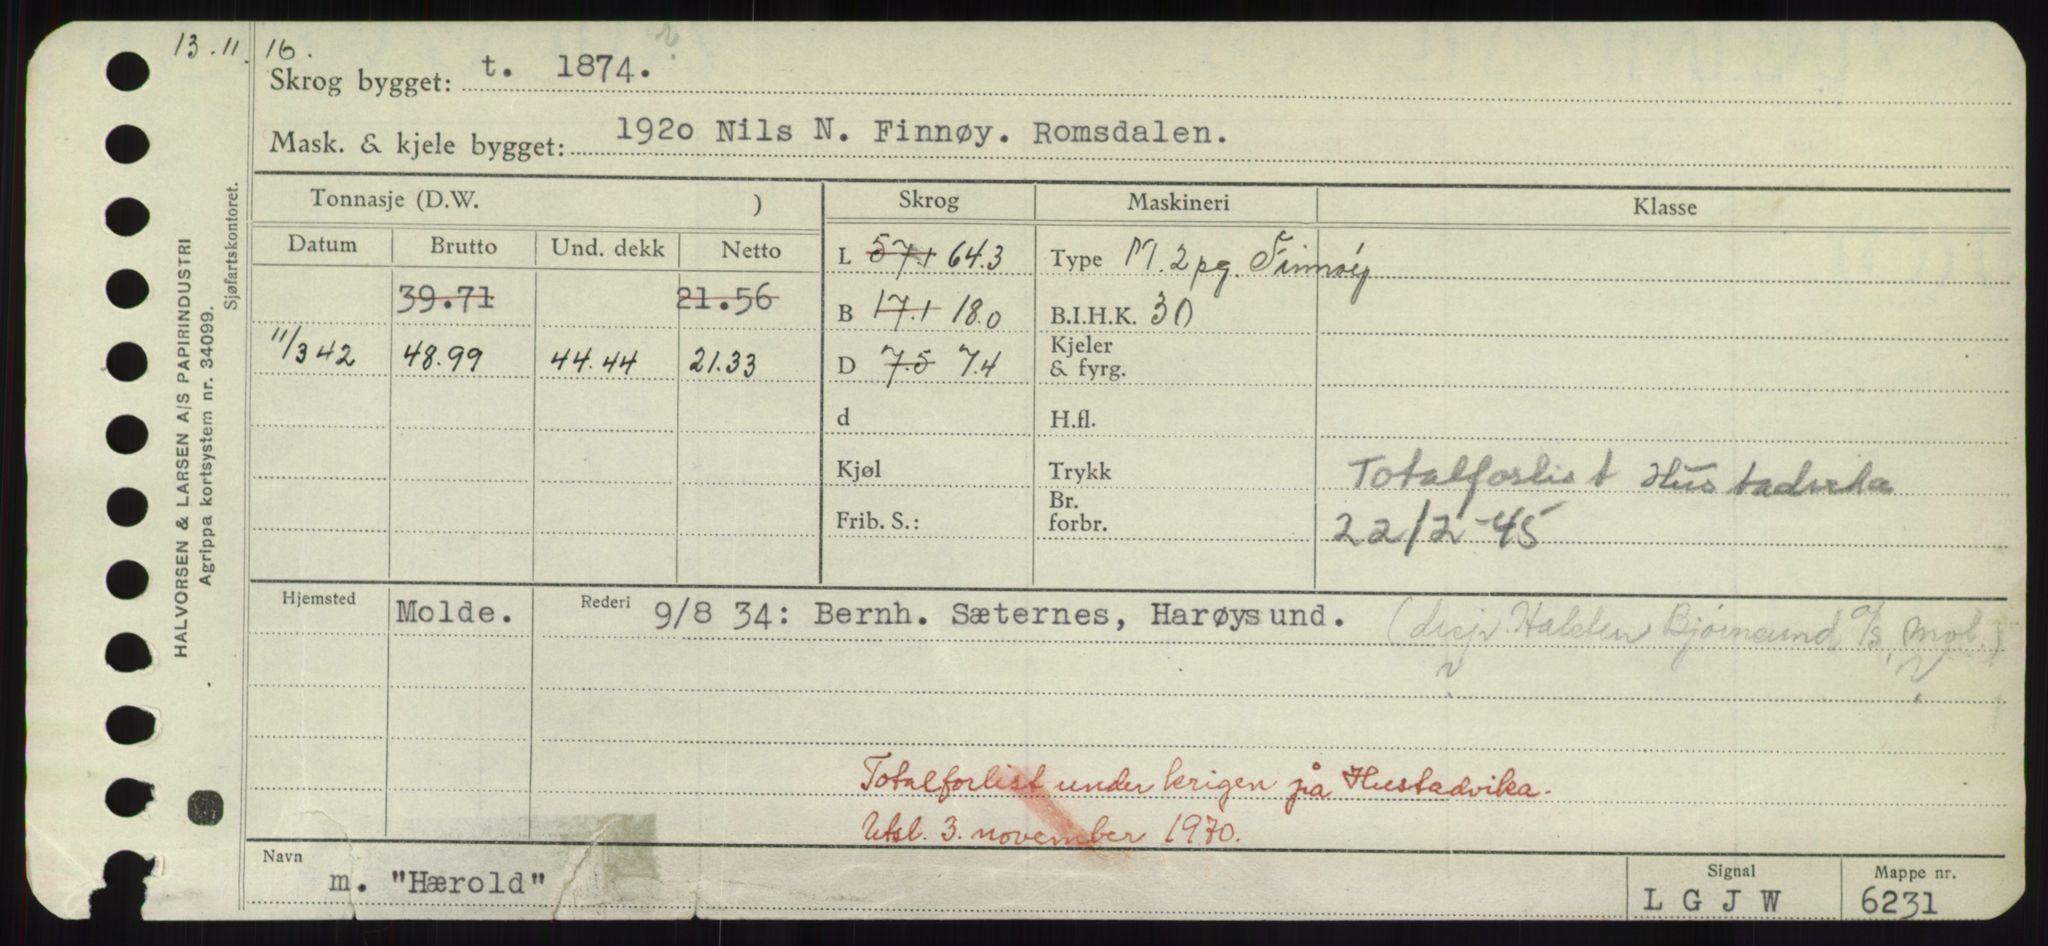 13.11.16.
Skrog bygget: t. 1874.
Mask. & kjele bygget: 1920 Nils N. Finnøy. Romsdalen.
Tonnasje (D.W. ) Skrog Maskineri Klasse
Datum Brutto Und. dekk Netto L 57.1 64.3 Type M. 2 pg. Finnøy
39.71 21.56 B 17.1 18.0 B.I.H.K. 30
11/3 42 48.99 44.44 21.33 D 7.5 7.4 Kjeler & fyrg.
d H.fl.
Kjøl Trykk Totalforlist Hustadvika
Frib. S.: Br. forbr. 22/2-45
Hjemsted Molde. Rederi 9/8 34: Bernh. Sæternes, Harøysund. (disp. Halden Bjørnsund %s, Mol.)
Totalforlist under krigen på Hustadvika.
Utsl. 3. november 1970.
Navn m. "Hærold" Signal L G J W Mappe nr. 6231
HALVORSEN & LARSEN A/S PAPIRINDUSTRI
Agrippa kortsystem nr. 34099.
Sjøfartskontoret.